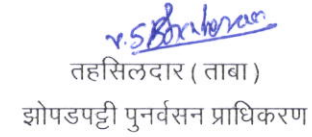 तहसिलदार ( ताबा )
झोपडपट्टी पुनर्वसन प्राधिकरण